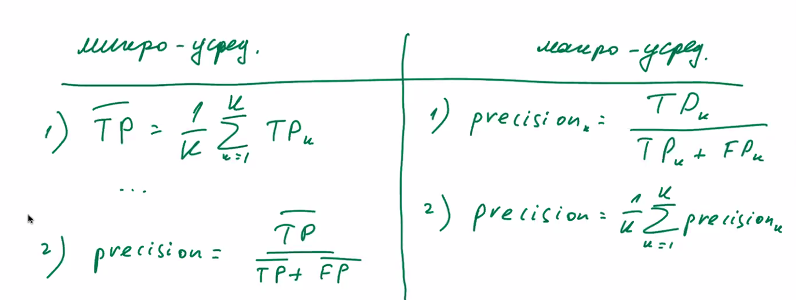 микро-усред.
1) TP̅ = 1/K ∑_{k=1}^{K} TP_k
...
2) precision = TP̅ / (TP̅ + FP̅)
макро-усред.
1) precision_k = TP_k / (TP_k + FP_k)
2) precision = 1/K ∑_{k=1}^{K} precision_k